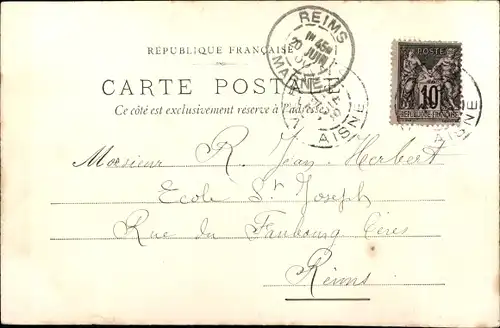 REIMS
20 JUIN
MARNE
RÉPUBLIQUE FRANÇAISE
POSTE
10
REPUBLIQUE FRANÇAISE
CARTE POSTALE
Ce côté est exclusivement réservé à l'adresse
AISNE
AISNE
Monsieur R. Jean-Herbert
Ecole St Joseph
Rue du Faubourg Cérès
Reims